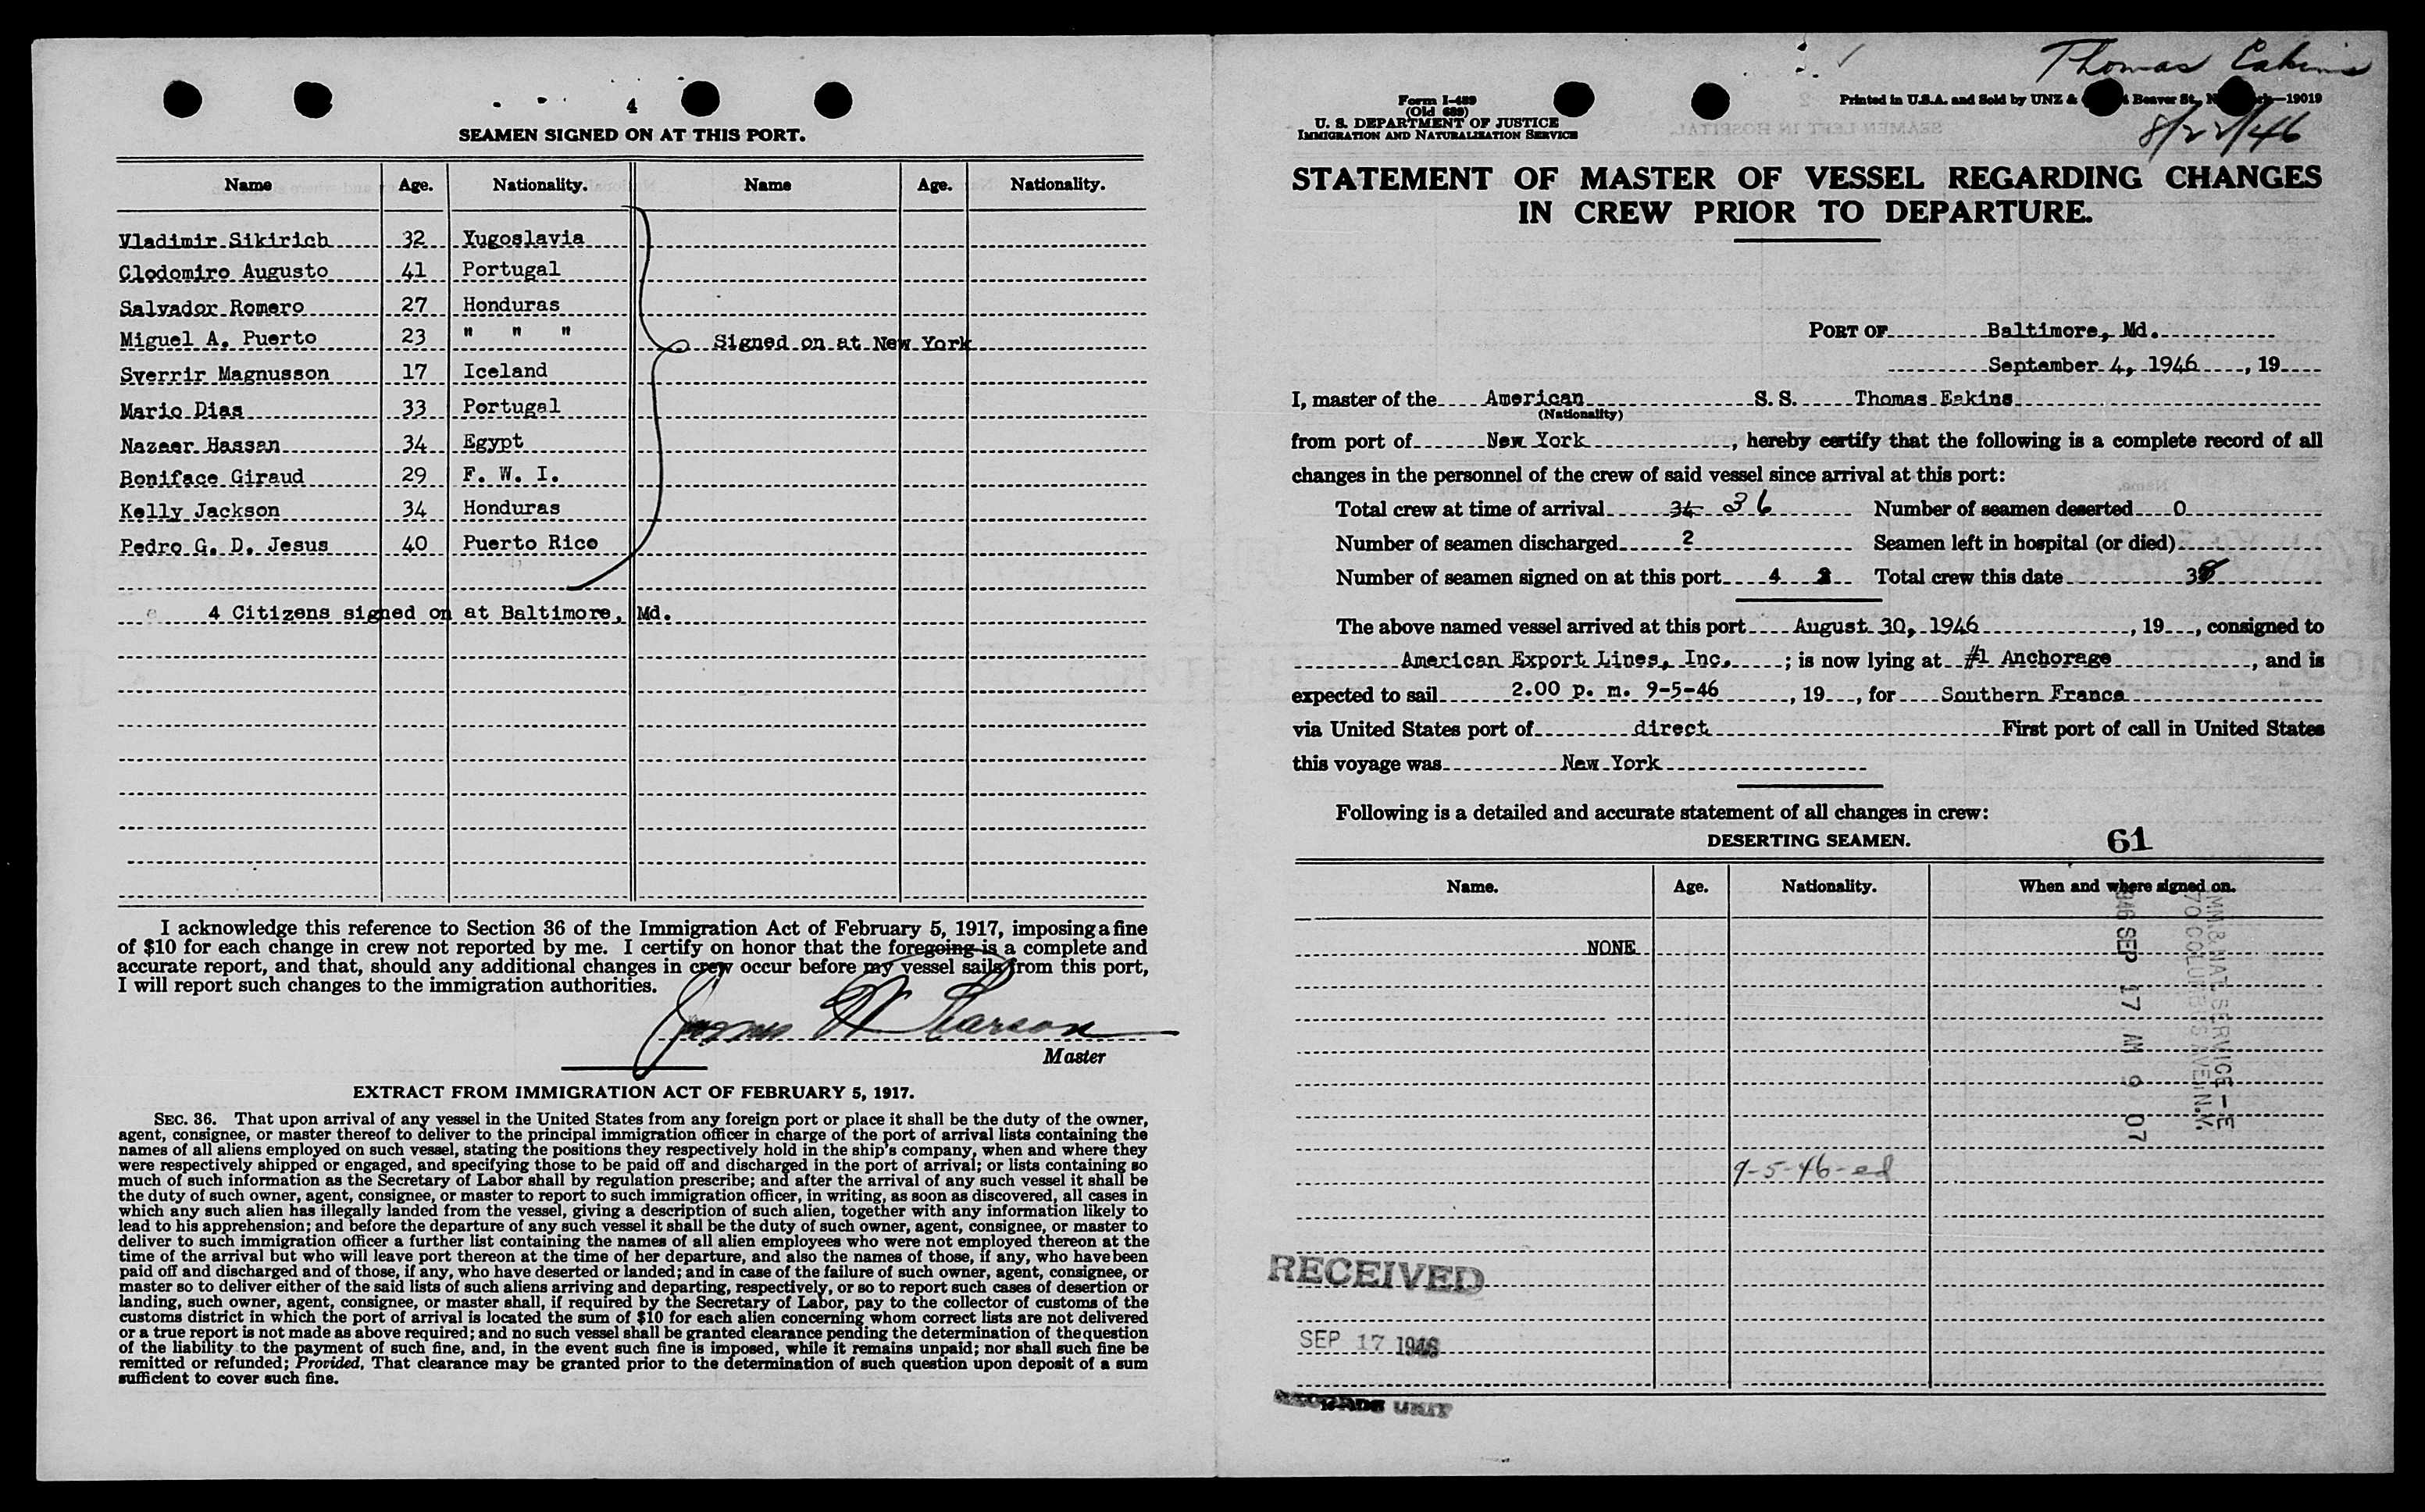 4
SEAMEN SIGNED ON AT THIS PORT.
Name Age. Nationality. Name Age. Nationality.
Vladimir Sikirich 32 Yugoslavia
Clodomiro Augusto 41 Portugal
Salvador Romero 27 Honduras
Miguel A. Puerto 23 " " "
Signed on at New York
Sverrir Magnusson 17 Iceland
Mario Dias 33 Portugal
Nazeer Hassan 34 Egypt
Boniface Giraud 29 F. W. I.
Kelly Jackson 34 Honduras
Pedro G. D. Jesus 40 Puerto Rico
4 Citizens signed on at Baltimore, Md.
I acknowledge this reference to Section 36 of the Immigration Act of February 5, 1917, imposing a fine
of $10 for each change in crew not reported by me. I certify on honor that the foregoing is a complete and
accurate report, and that, should any additional changes in crew occur before my vessel sails from this port,
I will report such changes to the immigration authorities.
Master
EXTRACT FROM IMMIGRATION ACT OF FEBRUARY 5, 1917.
SEC. 36. That upon arrival of any vessel in the United States from any foreign port or place it shall be the duty of the owner,
agent, consignee, or master thereof to deliver to the principal immigration officer in charge of the port of arrival lists containing the
names of all aliens employed on such vessel, stating the positions they respectively hold in the ship's company, when and where they
were respectively shipped or engaged, and specifying those to be paid off and discharged in the port of arrival; or lists containing so
much of such information as the Secretary of Labor shall by regulation prescribe; and after the arrival of any such vessel it shall be
the duty of such owner, agent, consignee, or master to report to such immigration officer, in writing, as soon as discovered, all cases in
which any such alien has illegally landed from the vessel, giving a description of such alien, together with any information likely to
lead to his apprehension; and before the departure of any such vessel it shall be the duty of such owner, agent, consignee, or master to
deliver to such immigration officer a further list containing the names of all alien employees who were not employed thereon at the
time of the arrival but who will leave port thereon at the time of her departure, and also the names of those, if any, who have been
paid off and discharged and of those, if any, who have deserted or landed; and in case of the failure of such owner, agent, consignee, or
master so to deliver either of the said lists of such aliens arriving and departing, respectively, or so to report such cases of desertion or
landing, such owner, agent, consignee, or master shall, if required by the Secretary of Labor, pay to the collector of customs of the
customs district in which the port of arrival is located the sum of $10 for each alien concerning whom correct lists are not delivered
or a true report is not made as above required; and no such vessel shall be granted clearance pending the determination of the question
of the liability to the payment of such fine, and, in the event such fine is imposed, while it remains unpaid; nor shall such fine be
remitted or refunded; Provided, That clearance may be granted prior to the determination of such question upon deposit of a sum
sufficient to cover such fine.
Thomas Eakins
8/22/46
Form I-489
(Old 689)
U. S. DEPARTMENT OF JUSTICE
IMMIGRATION AND NATURALIZATION SERVICE
Printed in U.S.A. and Sold by UNZ & Beaver St., —19019
STATEMENT OF MASTER OF VESSEL REGARDING CHANGES
IN CREW PRIOR TO DEPARTURE.
PORT OF Baltimore, Md.
September 4, 1946, 19
I, master of the American S. S. Thomas Eakins
(Nationality)
from port of New York, hereby certify that the following is a complete record of all
changes in the personnel of the crew of said vessel since arrival at this port:
Total crew at time of arrival 34 36 Number of seamen deserted 0
Number of seamen discharged 2 Seamen left in hospital (or died)
Number of seamen signed on at this port 4 Total crew this date 38
The above named vessel arrived at this port August 30, 1946, 19, consigned to
American Export Lines, Inc. ; is now lying at #1 Anchorage, and is
expected to sail 2.00 p. m. 9-5-46, 19, for Southern France
via United States port of direct First port of call in United States
this voyage was New York
Following is a detailed and accurate statement of all changes in crew:
DESERTING SEAMEN.
61
Name. Age. Nationality. When and where signed on.
NONE
1946 SEP 17 AM 9 07
IMM. & NAT. SERVICE-E
70 COLUMBUS AVE. N.Y.
9-5-46-ed
RECEIVED
SEP 17 1946
RECORDS UNIT